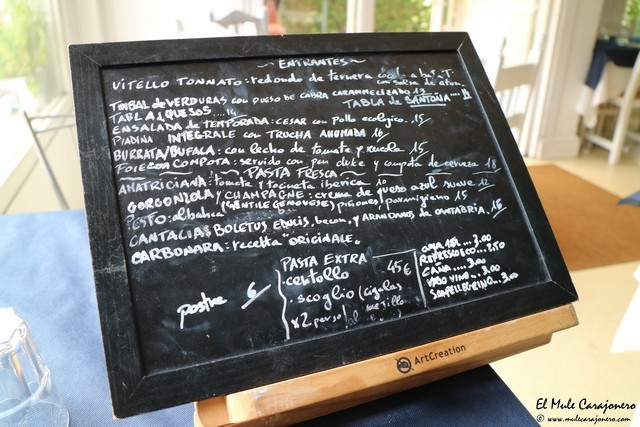 ENTRANTES
VITELLO TONNATO: redondo de ternera con salsa de atun
TIMBAL de VERDURAS con QUESO DE CABRA CARAMELIZADO 13
TABLA 4 QUESOS ... 14
TABLA DE SANTOÑA
ENSALADA de TEMPORADA: CESAR con Pollo ecologico. 15
PIADINA INTEGRALE con TRUCHA AHUMADA 16
BURRATA/BUFALA: con lecho de tomate y rucola 15
FOIE COMPOTA: servido con pan dulce y compota de cerveza 18
PASTA FRESCA
AMATRICIANA: tomate y tocineta iberica 10
GORGONZOLA y CHAMPAGNE: crema de queso azul suave 12
PESTO: albahaca (GENTILE GENOVESE) piñones, parmigiano 15
CANTALIA: BOLETUS EDULIS, bacon, y ARANDANOS de CANTABRIA. 16
CARBONARA: recetta "ORIGINALE"
PASTA EXTRA
centollo
scoglio (cigalas
x2 mejillo
45€
postre 6
AGUA ... 3.00
REFRESCO ... 3.50
CAÑA .... 3.00
VASO VINO .. 3.00
SANPELLEGRINO... 3.00
ArtCreation
El Mule Carajonero
© www.mulecarajonero.com